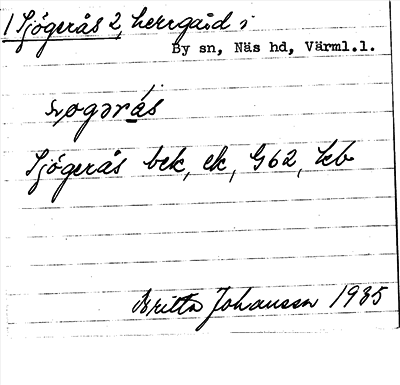 1 Sjögerås 2, herrgård i
By sn, Näs hd, Värml.l.
Sjögerås bek, ek, G62, kb
Britta Johansson 1935